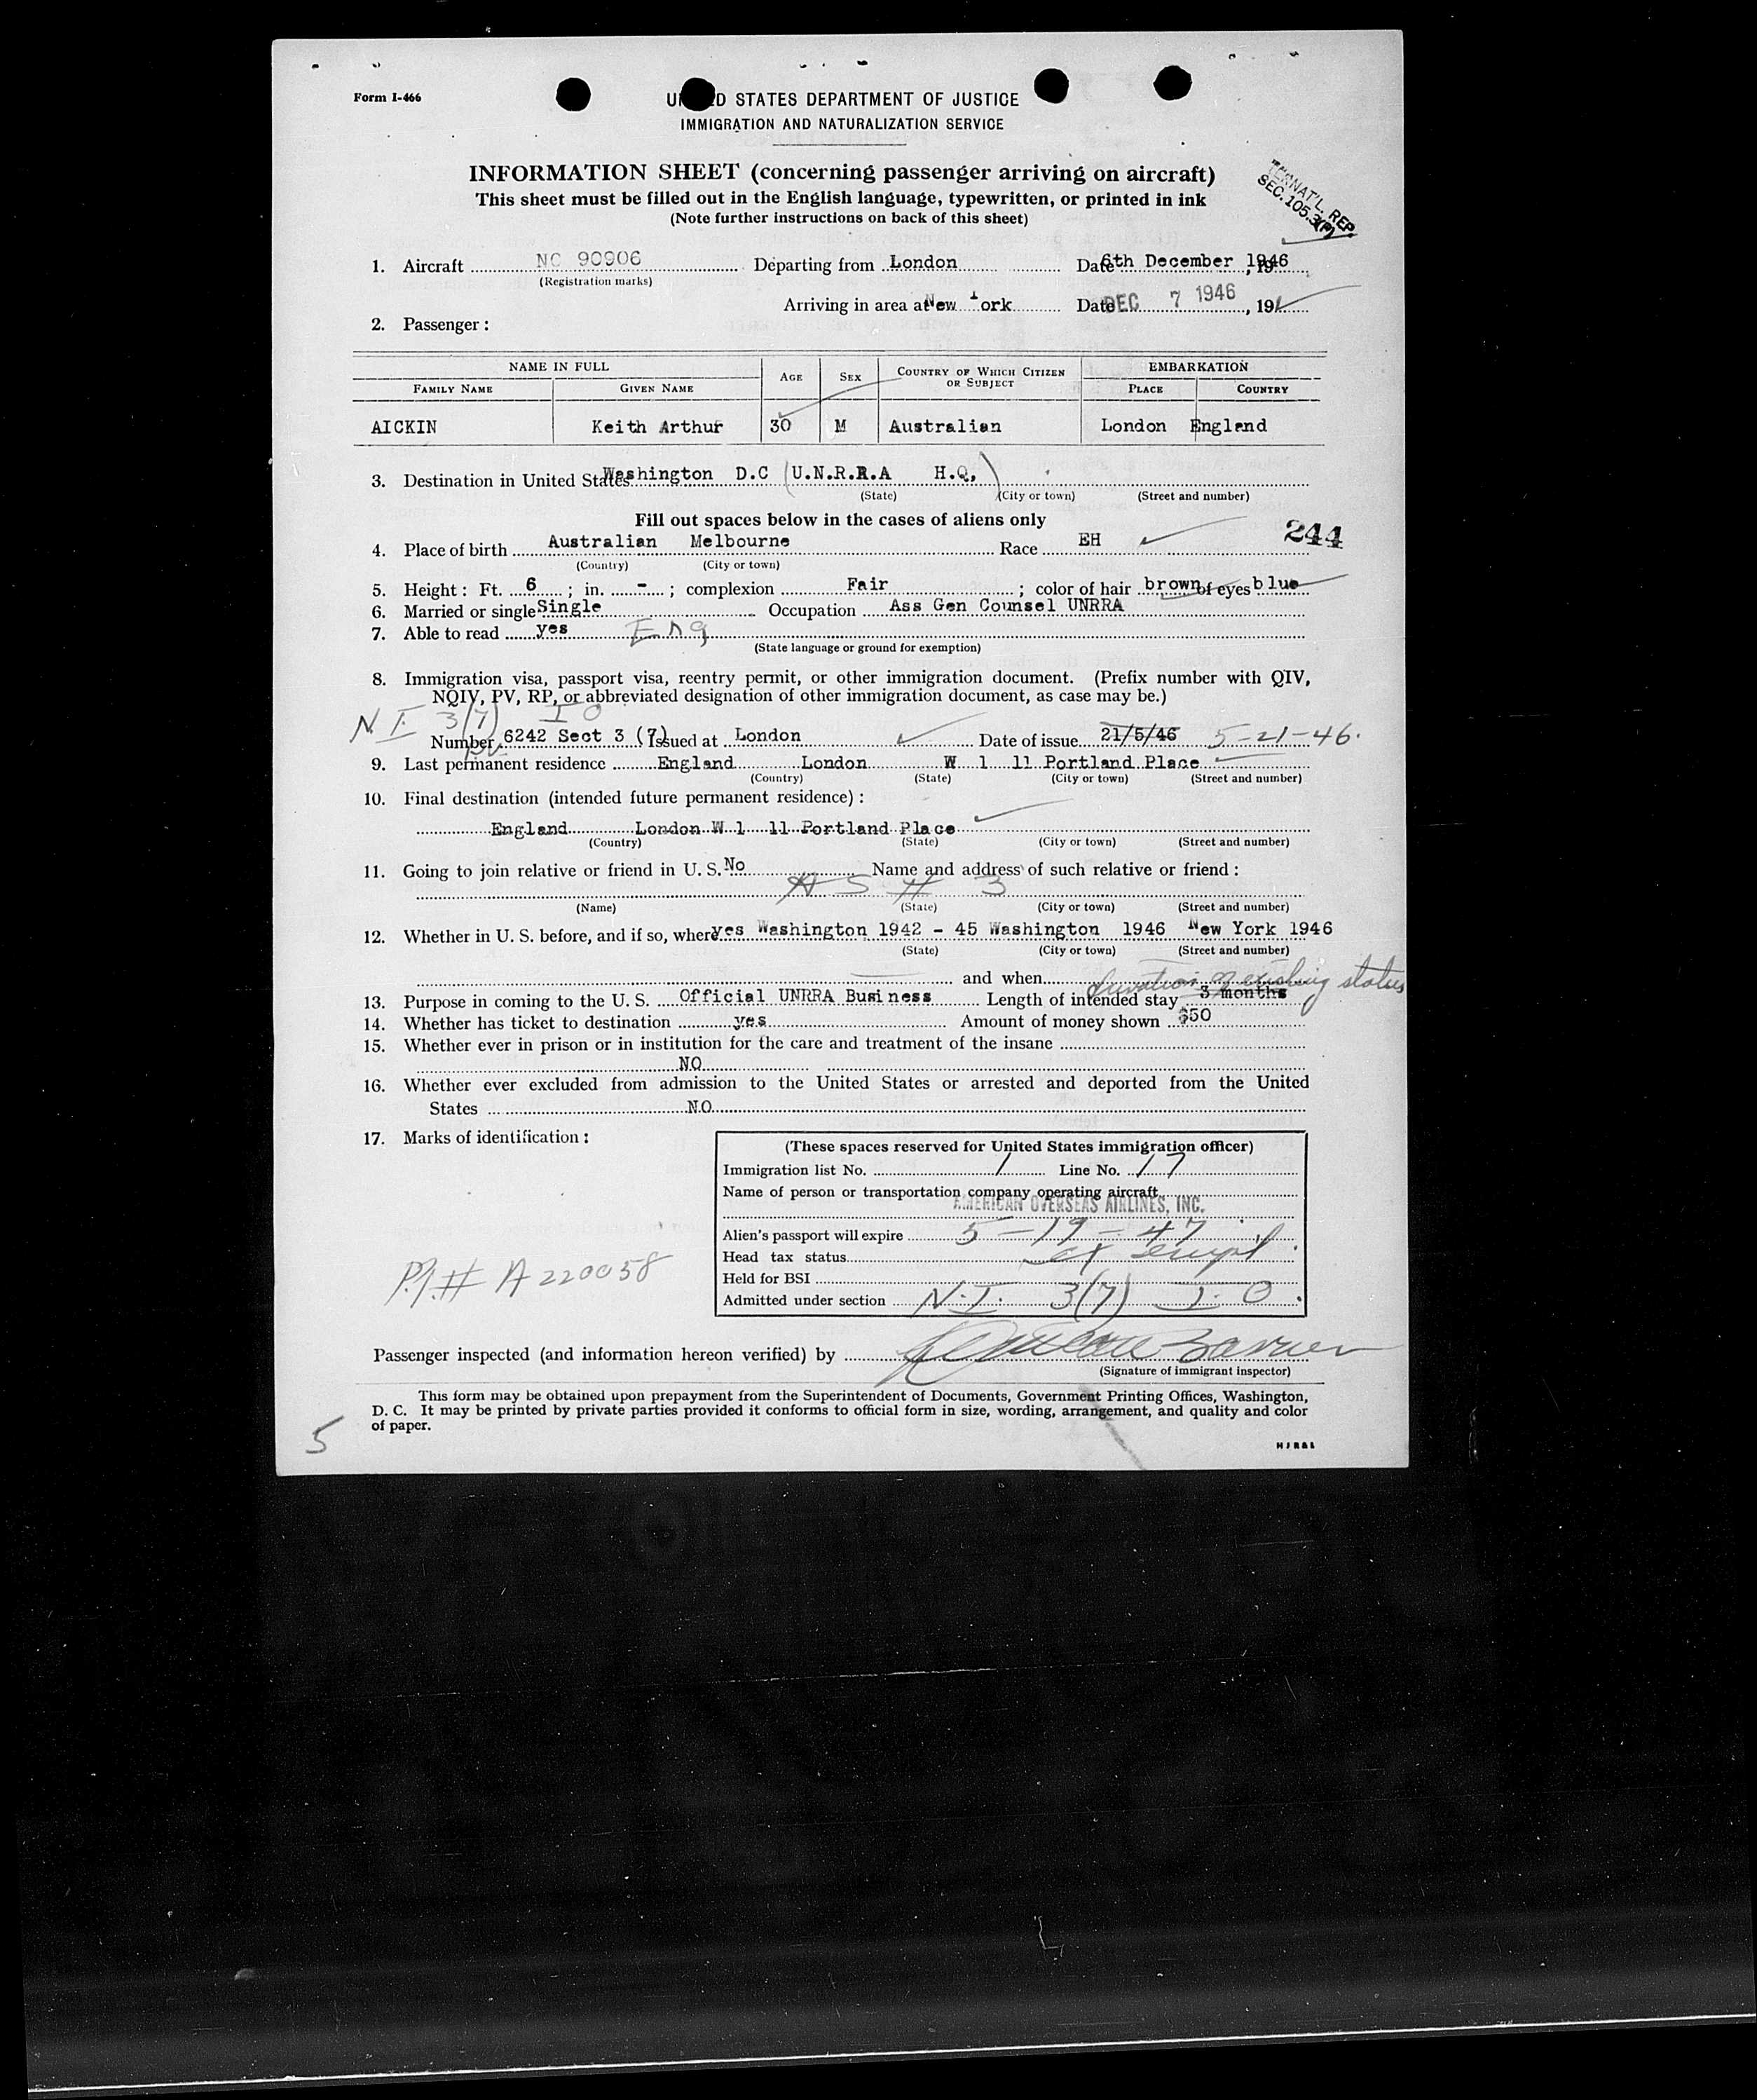 Form I-466
UNITED STATES DEPARTMENT OF JUSTICE
IMMIGRATION AND NATURALIZATION SERVICE
INFORMATION SHEET (concerning passenger arriving on aircraft)
This sheet must be filled out in the English language, typewritten, or printed in ink
(Note further instructions on back of this sheet)
INTERNAT'L. REP.
SEC. 105.3(P)
1. Aircraft NC 90906 Departing from London Date 6th December 1946, 19
(Registration marks)
Arriving in area at New York Date DEC 7 1946, 19
2. Passenger :
NAME IN FULL AGE SEX COUNTRY OF WHICH CITIZEN OR SUBJECT EMBARKATION
FAMILY NAME GIVEN NAME PLACE COUNTRY
AICKIN Keith Arthur 30 M Australian London England
3. Destination in United States Washington D.C (U.N.R.R.A H.Q,)
(State) (City or town) (Street and number)
Fill out spaces below in the cases of aliens only
244
4. Place of birth Australian Melbourne Race EH
(Country) (City or town)
5. Height : Ft. 6 ; in. - ; complexion Fair ; color of hair brown of eyes blue
6. Married or single Single Occupation Ass Gen Counsel UNRRA
7. Able to read yes Eng
(State language or ground for exemption)
8. Immigration visa, passport visa, reentry permit, or other immigration document. (Prefix number with QIV,
NQIV, PV, RP, or abbreviated designation of other immigration document, as case may be.)
N I 3(7) I O
Number PV 6242 Sect 3 (7) Issued at London Date of issue 21/5/46 5-21-46.
9. Last permanent residence England London W 1 11 Portland Place
(Country) (State) (City or town) (Street and number)
10. Final destination (intended future permanent residence) :
England London W 1 11 Portland Place
(Country) (State) (City or town) (Street and number)
11. Going to join relative or friend in U. S. No Name and address of such relative or friend :
# 3
(Name) (State) (City or town) (Street and number)
12. Whether in U. S. before, and if so, where yes Washington 1942 - 45 Washington 1946 New York 1946
(State) (City or town) (Street and number)
and when
duration of existing status
13. Purpose in coming to the U. S. Official UNRRA Business Length of intended stay 3 months
14. Whether has ticket to destination yes Amount of money shown $50
15. Whether ever in prison or in institution for the care and treatment of the insane
NO
16. Whether ever excluded from admission to the United States or arrested and deported from the United
States NO
17. Marks of identification :
(These spaces reserved for United States immigration officer)
Immigration list No. 1 Line No. 17
Name of person or transportation company operating aircraft
AMERICAN OVERSEAS AIRLINES, INC.
Alien's passport will expire 5-19-47
Head tax status exempt
Held for BSI
Admitted under section N.I. 3(7) I.O.
P/# A 220058
Passenger inspected (and information hereon verified) by
(Signature of immigrant inspector)
This form may be obtained upon prepayment from the Superintendent of Documents, Government Printing Offices, Washington,
D. C. It may be printed by private parties provided it conforms to official form in size, wording, arrangement, and quality and color
of paper.
5
HJR&L